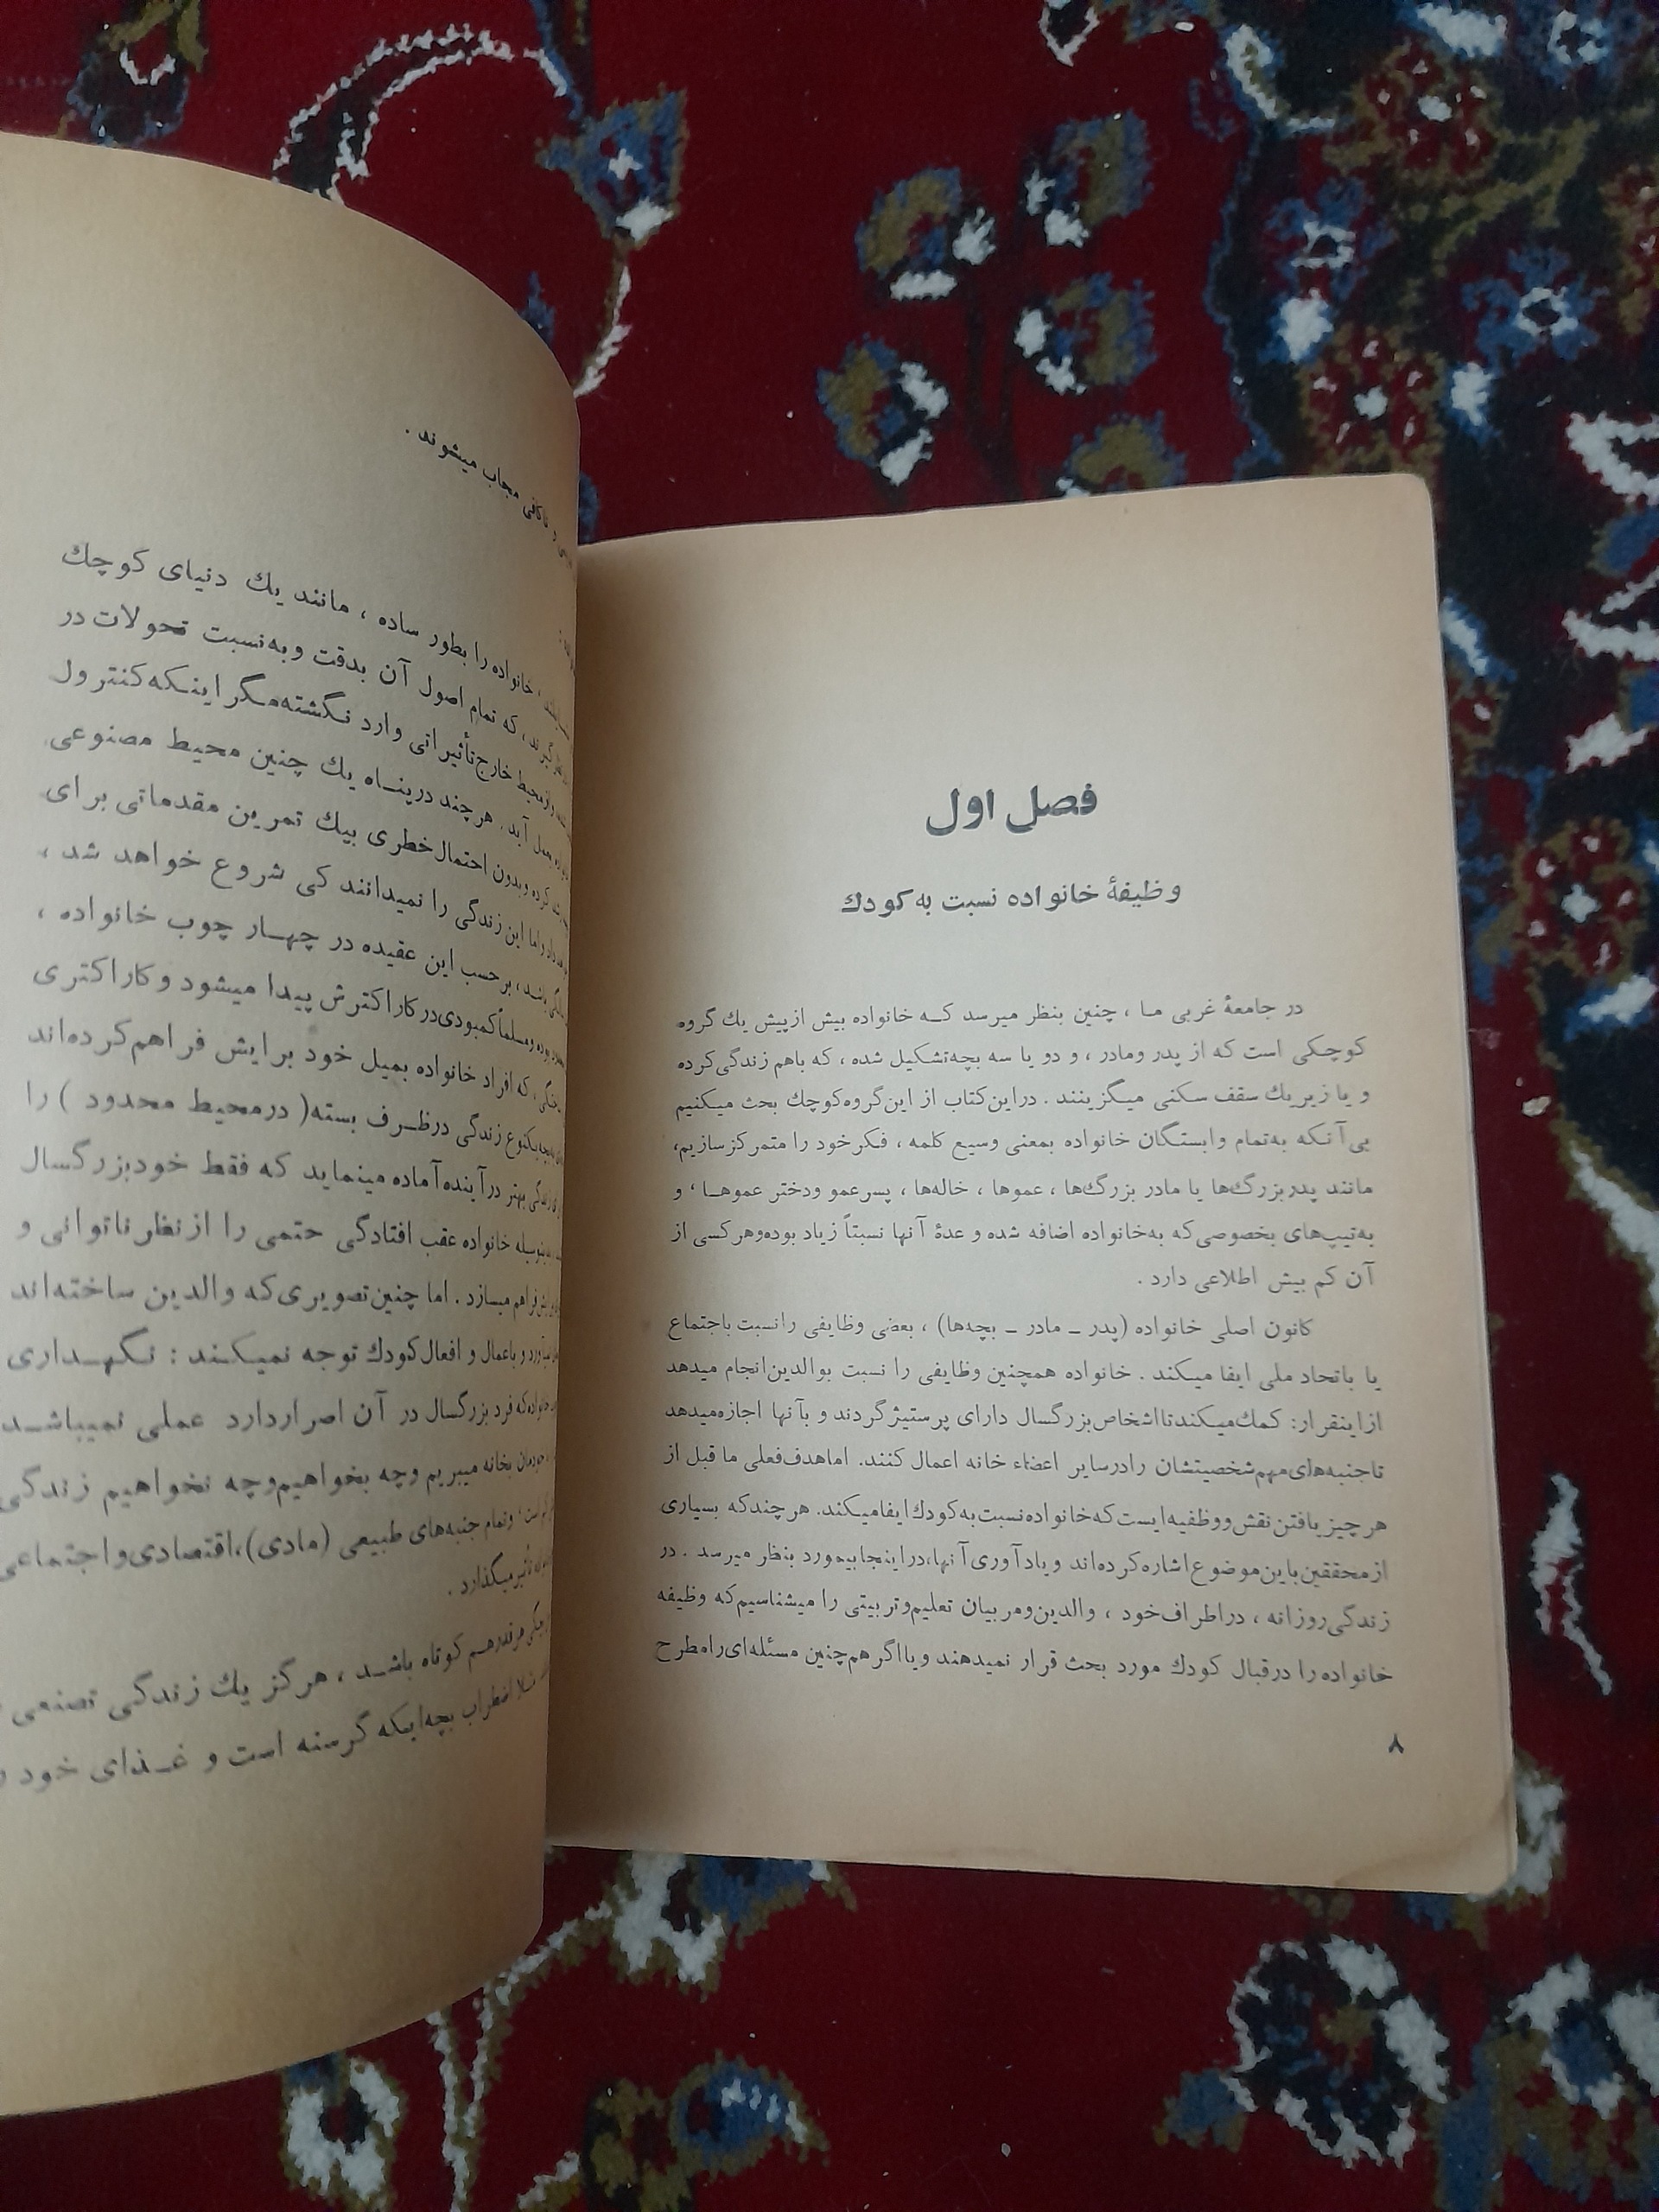 فصل اول
وظیفهٔ خانواده نسبت به کودك
در جامعهٔ غربی ما ، چنین بنظر میرسد کــه خانواده بیش از پیش یك گروه
کوچکی است که از پدر ومادر ، و دو یا سه بچه‌تشکیل شده ، که باهم زندگی‌کرده
و یا زیر یك سقف سکنی میگزینند . دراین‌کتاب از این‌گروه‌کوچك بحث میکنیم
بی‌آنکه به‌تمام وابستگان خانواده بمعنی وسیع کلمه ، فکرخود را متمرکزسازیم،
مانند پدربزرگ‌ها یا مادر بزرگ‌ها ، عموها ، خاله‌ها ، پسرعمو ودختر عموهــا ، و
به‌تیپ‌های بخصوصی‌که به‌خانواده اضافه شده و عدهٔ آنها نسبتاً زیاد بوده‌وهرکسی از
آن کم بیش اطلاعی دارد .
کانون اصلی خانواده (پدر ــ مادر ــ بچه‌ها) ، بعضی وظایفی رانسبت باجتماع
یا باتحاد ملی ایفا میکند . خانواده همچنین وظایفی را نسبت بوالدین‌انجام میدهد
ازاینقرار: کمك‌میکندتااشخاص‌بزرگسال دارای پرستیژگردند و بآنها اجازه‌میدهد
تاجنبه‌های‌مهم‌شخصیتشان رادرسایر اعضاء خانه اعمال کنند. اماهدف‌فعلی ما قبل از
هرچیزیافتن‌نقش‌ووظفیه‌ایست‌که‌خانواده‌نسبت‌به‌کودك‌ایفامیکند. هرچندکه بسیاری
ازمحققین‌باین‌موضوع‌اشاره‌کرده‌اند ویادآوری‌آنها،دراینجابیمورد بنظر میرسد . در
زندگی‌روزانه ، دراطراف‌خود ، والدین‌ومربیان تعلیم‌وتربیتی را میشناسیم‌که وظیفه
خانواده‌را درقبال کودك مورد بحث قرار نمیدهند ویااگرهم‌چنین مسئله‌ای‌رامطرح
۸
کافی مجاب میشوند .
خانواده را بطور ساده ، مانند یك دنیای کوچك
که تمام اصول آن بدقت وبه‌نسبت تحولات در
محیط خارج‌تأثیراتی وارد نگشته‌مگراینکه‌کنترول
بعمل آید. هرچند درپنــاه یك چنین محیط مصنوعی
کرده وبدون احتمال‌خطری بیك تمرین مقدماتی برای
اما این زندگی را نمیدانند کی شروع خواهد شد ،
برحسب این عقیده در چهــار چوب خانواده ،
بوده ومسلماًکمبودی‌درکاراکترش پیدا میشود وکاراکتری
که افراد خانواده بمیل خود برایش فراهم‌کرده‌اند
زندگی درظــرف بسته( درمحیط محدود ) را
بهتر درآینده‌آماده مینماید که فقط خودبزرگسال
خانواده عقب افتادگی حتمی را ازنظرناتوانی و
فراهم میسازد . اما چنین‌تصویری‌که والدین ساخته‌اند
و باعمال و افعال‌کودك توجه نمیکــنند : نــگهــداری
که فرد بزرگسال در آن اصراردارد عملی نمیباشــد
بخانه میبریم وچه بخواهیم‌وچه نخواهیم زندگی
است ، وتمام جنبه‌های طبیعی (مادی)،اقتصادی‌واجتماعی
تأثیرمیگذارد .
هرقدرهــم کوتاه باشــد ، هرگز یك زندگی تصنعی
اضطراب بچه‌ایکه گرسنه است و غــذای خود